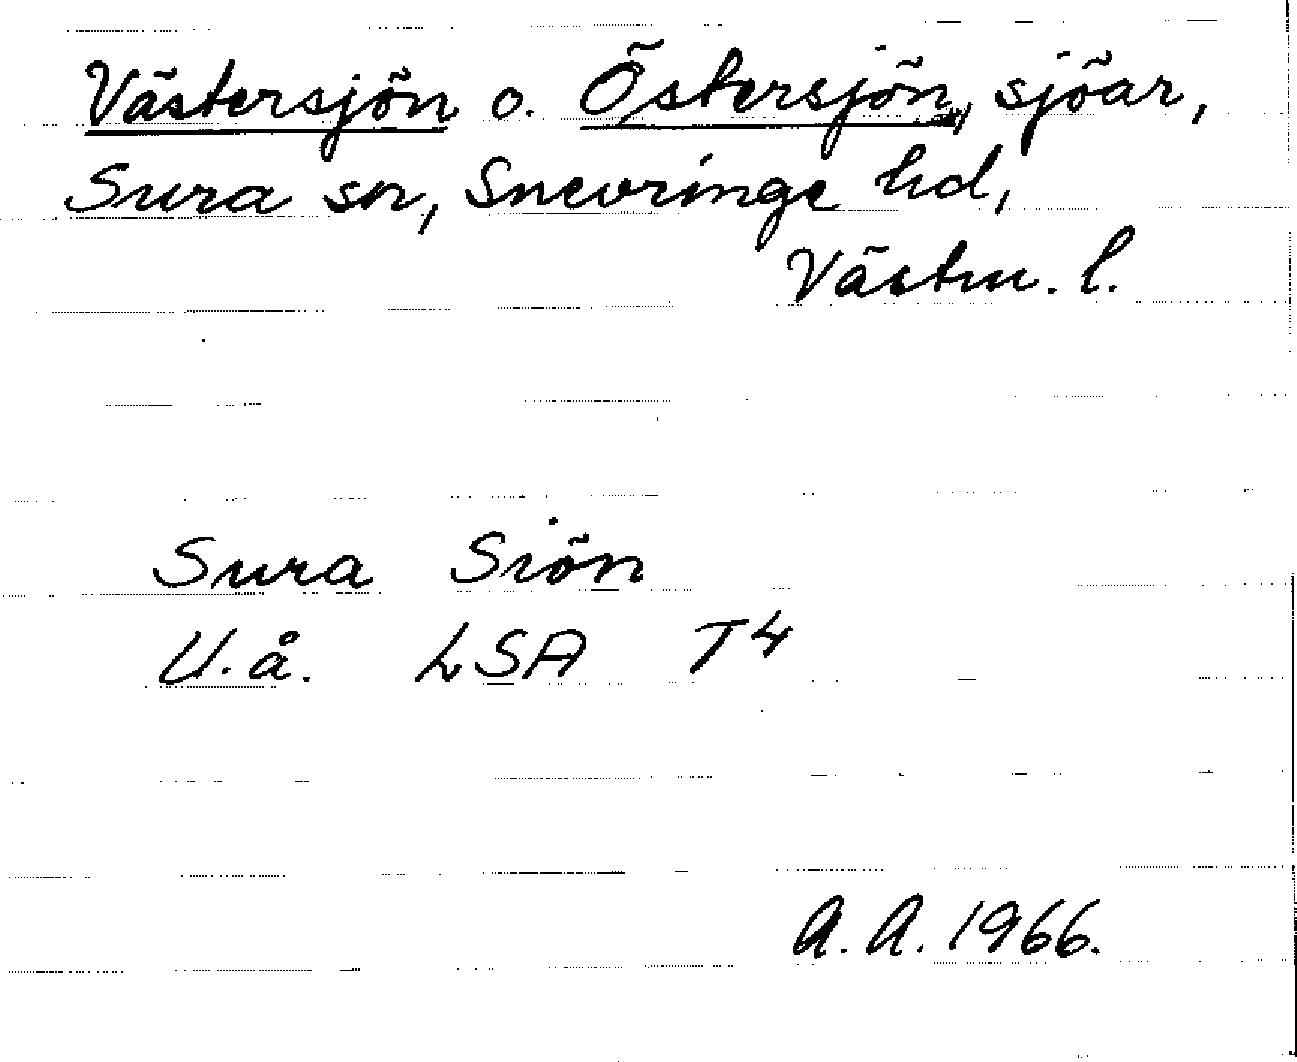 Västersjön o. Östersjön, sjöar,
Sura sn, Snevringe hd,
Västm. l.
Sura Siön
U.å. LSA T4
A.A. 1966.